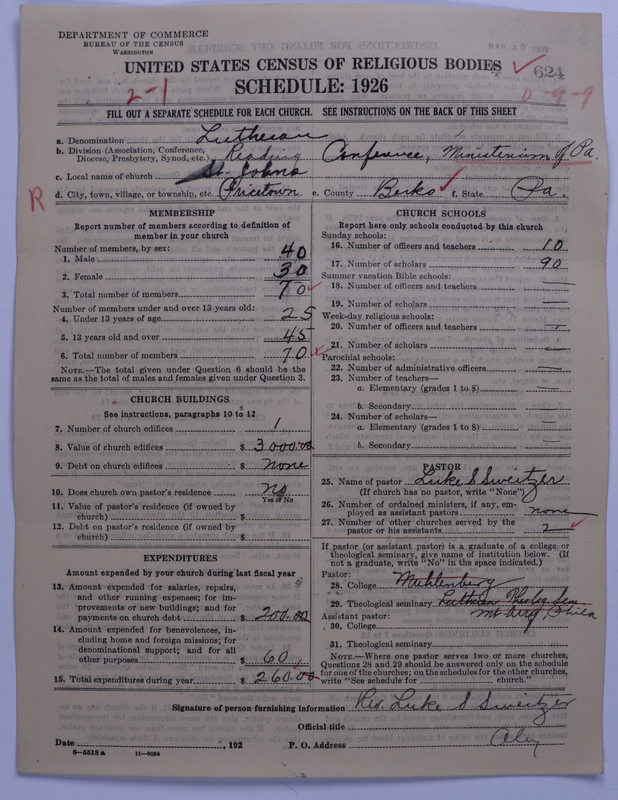 DEPARTMENT OF COMMERCE
BUREAU OF THE CENSUS
WASHINGTON
UNITED STATES CENSUS OF RELIGIOUS BODIES
624
SCHEDULE: 1926
2-1
0-9-9
FILL OUT A SEPARATE SCHEDULE FOR EACH CHURCH. SEE INSTRUCTIONS ON THE BACK OF THIS SHEET
a. Denomination Lutheran
b. Division (Association, Conference, Diocese, Presbytery, Synod, etc.) Reading Conference, Ministerium of Pa.
c. Local name of church St. Johns
R
d. City, town, village, or township, etc. Pricetown e. County Berks f. State Pa.
MEMBERSHIP
Report number of members according to definition of
member in your church
Number of members, by sex:
1. Male 40
2. Female 30
3. Total number of members 70
Number of members under and over 13 years old:
4. Under 13 years of age 25
5. 13 years old and over 45
6. Total number of members 70
NOTE.—The total given under Question 6 should be the
same as the total of males and females given under Question 3.
CHURCH BUILDINGS
See instructions, paragraphs 10 to 12
7. Number of church edifices 1
8. Value of church edifices $ 3000.00
9. Debt on church edifices $ none
10. Does church own pastor's residence no
Yes or No
11. Value of pastor's residence (if owned by
church) $
12. Debt on pastor's residence (if owned by
church) $
EXPENDITURES
Amount expended by your church during last fiscal year
13. Amount expended for salaries, repairs,
and other running expenses; for im-
provements or new buildings; and for
payments on church debt $ 200.00
14. Amount expended for benevolences, in-
cluding home and foreign missions; for
denominational support; and for all
other purposes $ 60
15. Total expenditures during year $ 260.00
CHURCH SCHOOLS
Report here only schools conducted by this church
Sunday schools:
16. Number of officers and teachers 10
17. Number of scholars 90
Summer vacation Bible schools:
18. Number of officers and teachers —
19. Number of scholars —
Week-day religious schools:
20. Number of officers and teachers —
21. Number of scholars —
Parochial schools:
22. Number of administrative officers —
23. Number of teachers—
a. Elementary (grades 1 to 8) —
b. Secondary —
24. Number of scholars—
a. Elementary (grades 1 to 8) —
b. Secondary —
PASTOR
25. Name of pastor Luke S Sweitzer
(If church has no pastor, write "None")
26. Number of ordained ministers, if any, em-
ployed as assistant pastors none
27. Number of other churches served by the
pastor or his assistants 2
If pastor (or assistant pastor) is a graduate of a college or
theological seminary, give name of institution below. (If
not a graduate, write "No" in the space indicated.)
Pastor:
28. College Muhlenberg
29. Theological seminary Lutheran Theolog Sem
Assistant pastor: Mt Airy, Phila
30. College
31. Theological seminary
NOTE.—Where one pastor serves two or more churches,
Questions 28 and 29 should be answered only on the schedule
for one of the churches; on the schedules for the other churches,
write "See schedule for church."
Signature of person furnishing information Rev. Luke S. Sweitzer
Official title
Date , 192 P. O. Address Oley
8-5518a 11-9054